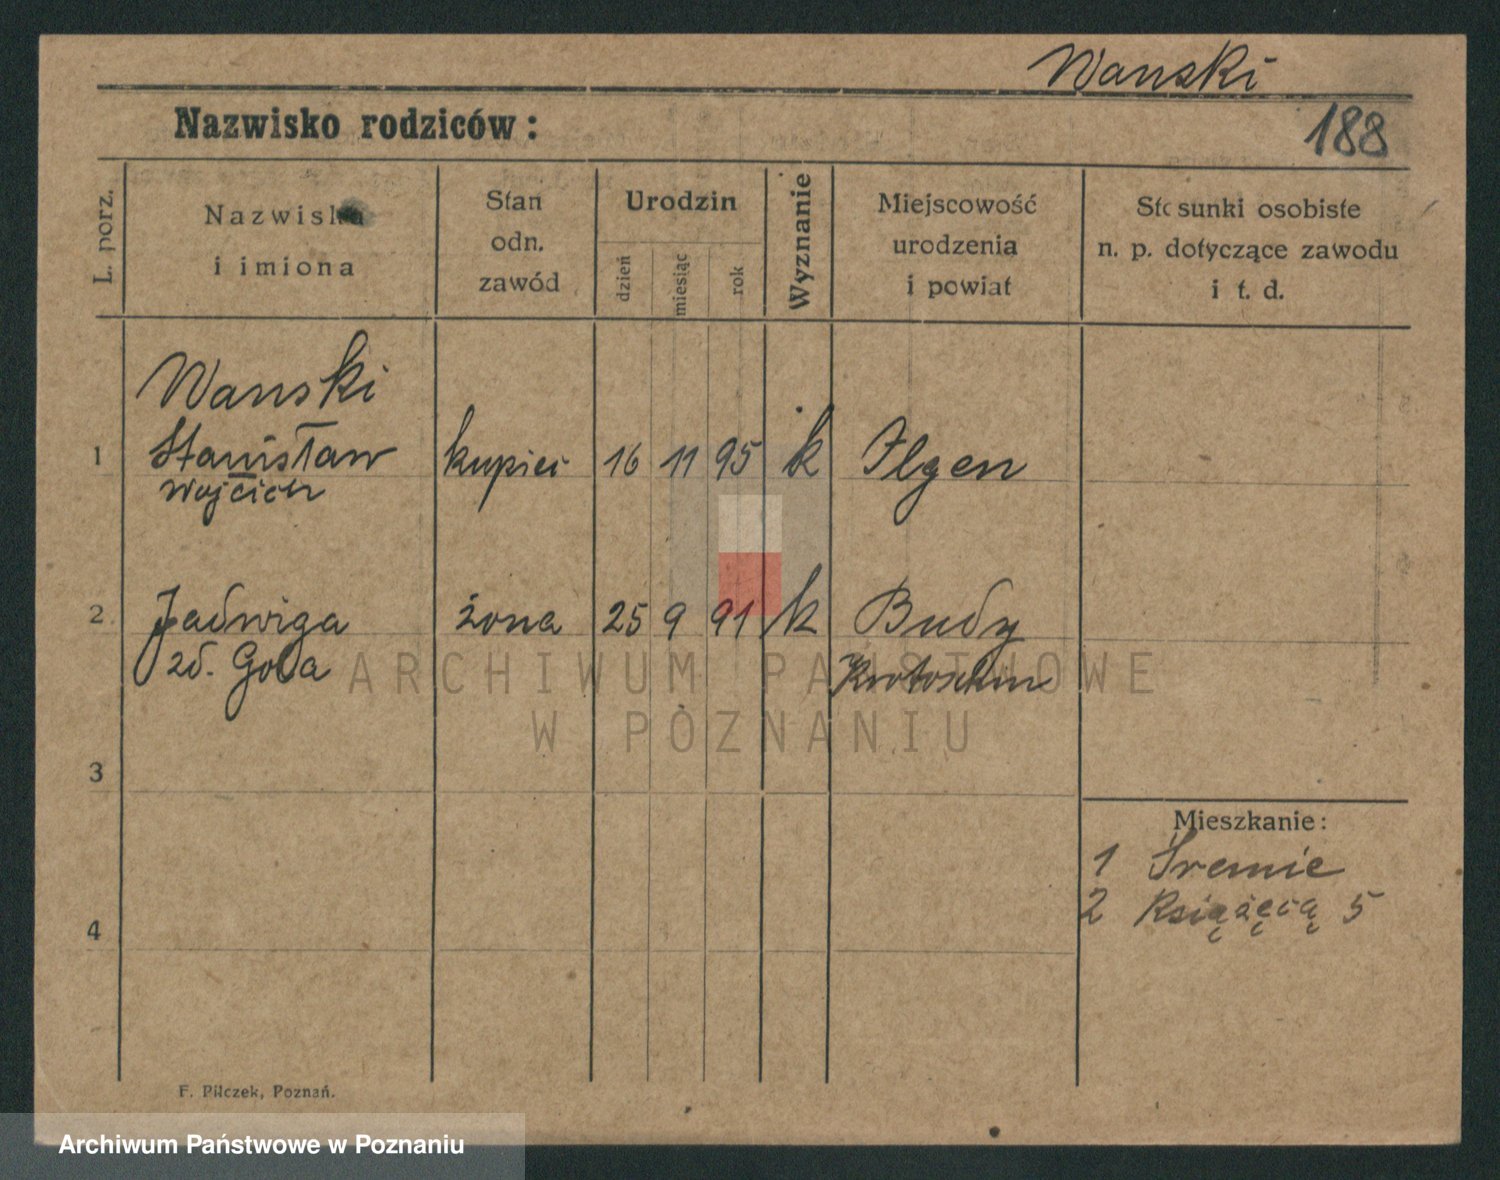 Wanski
Nazwisko rodziców:
188
L. porz.
Nazwiska
i imiona
Stan
odn.
zawód
Urodzin
dzień
miesiąc
rok
Wyznanie
Miejscowość
urodzenia
i powiat
Stosunki osobiste
n. p. dotyczące zawodu
i t. d.
Wanski
1 Stanisław kupiec 16 11 95 k Ilgen
Wojciech
2 Jadwiga żona 25 9 91 k Budy
zd. Goła Krotoschin
ARCHIWUM PAŃSTWOWE
W POZNANIU
3
Mieszkanie:
1 Śremie
2 Książęca 5
4
F. Pilczek, Poznań.
Archiwum Państwowe w Poznaniu